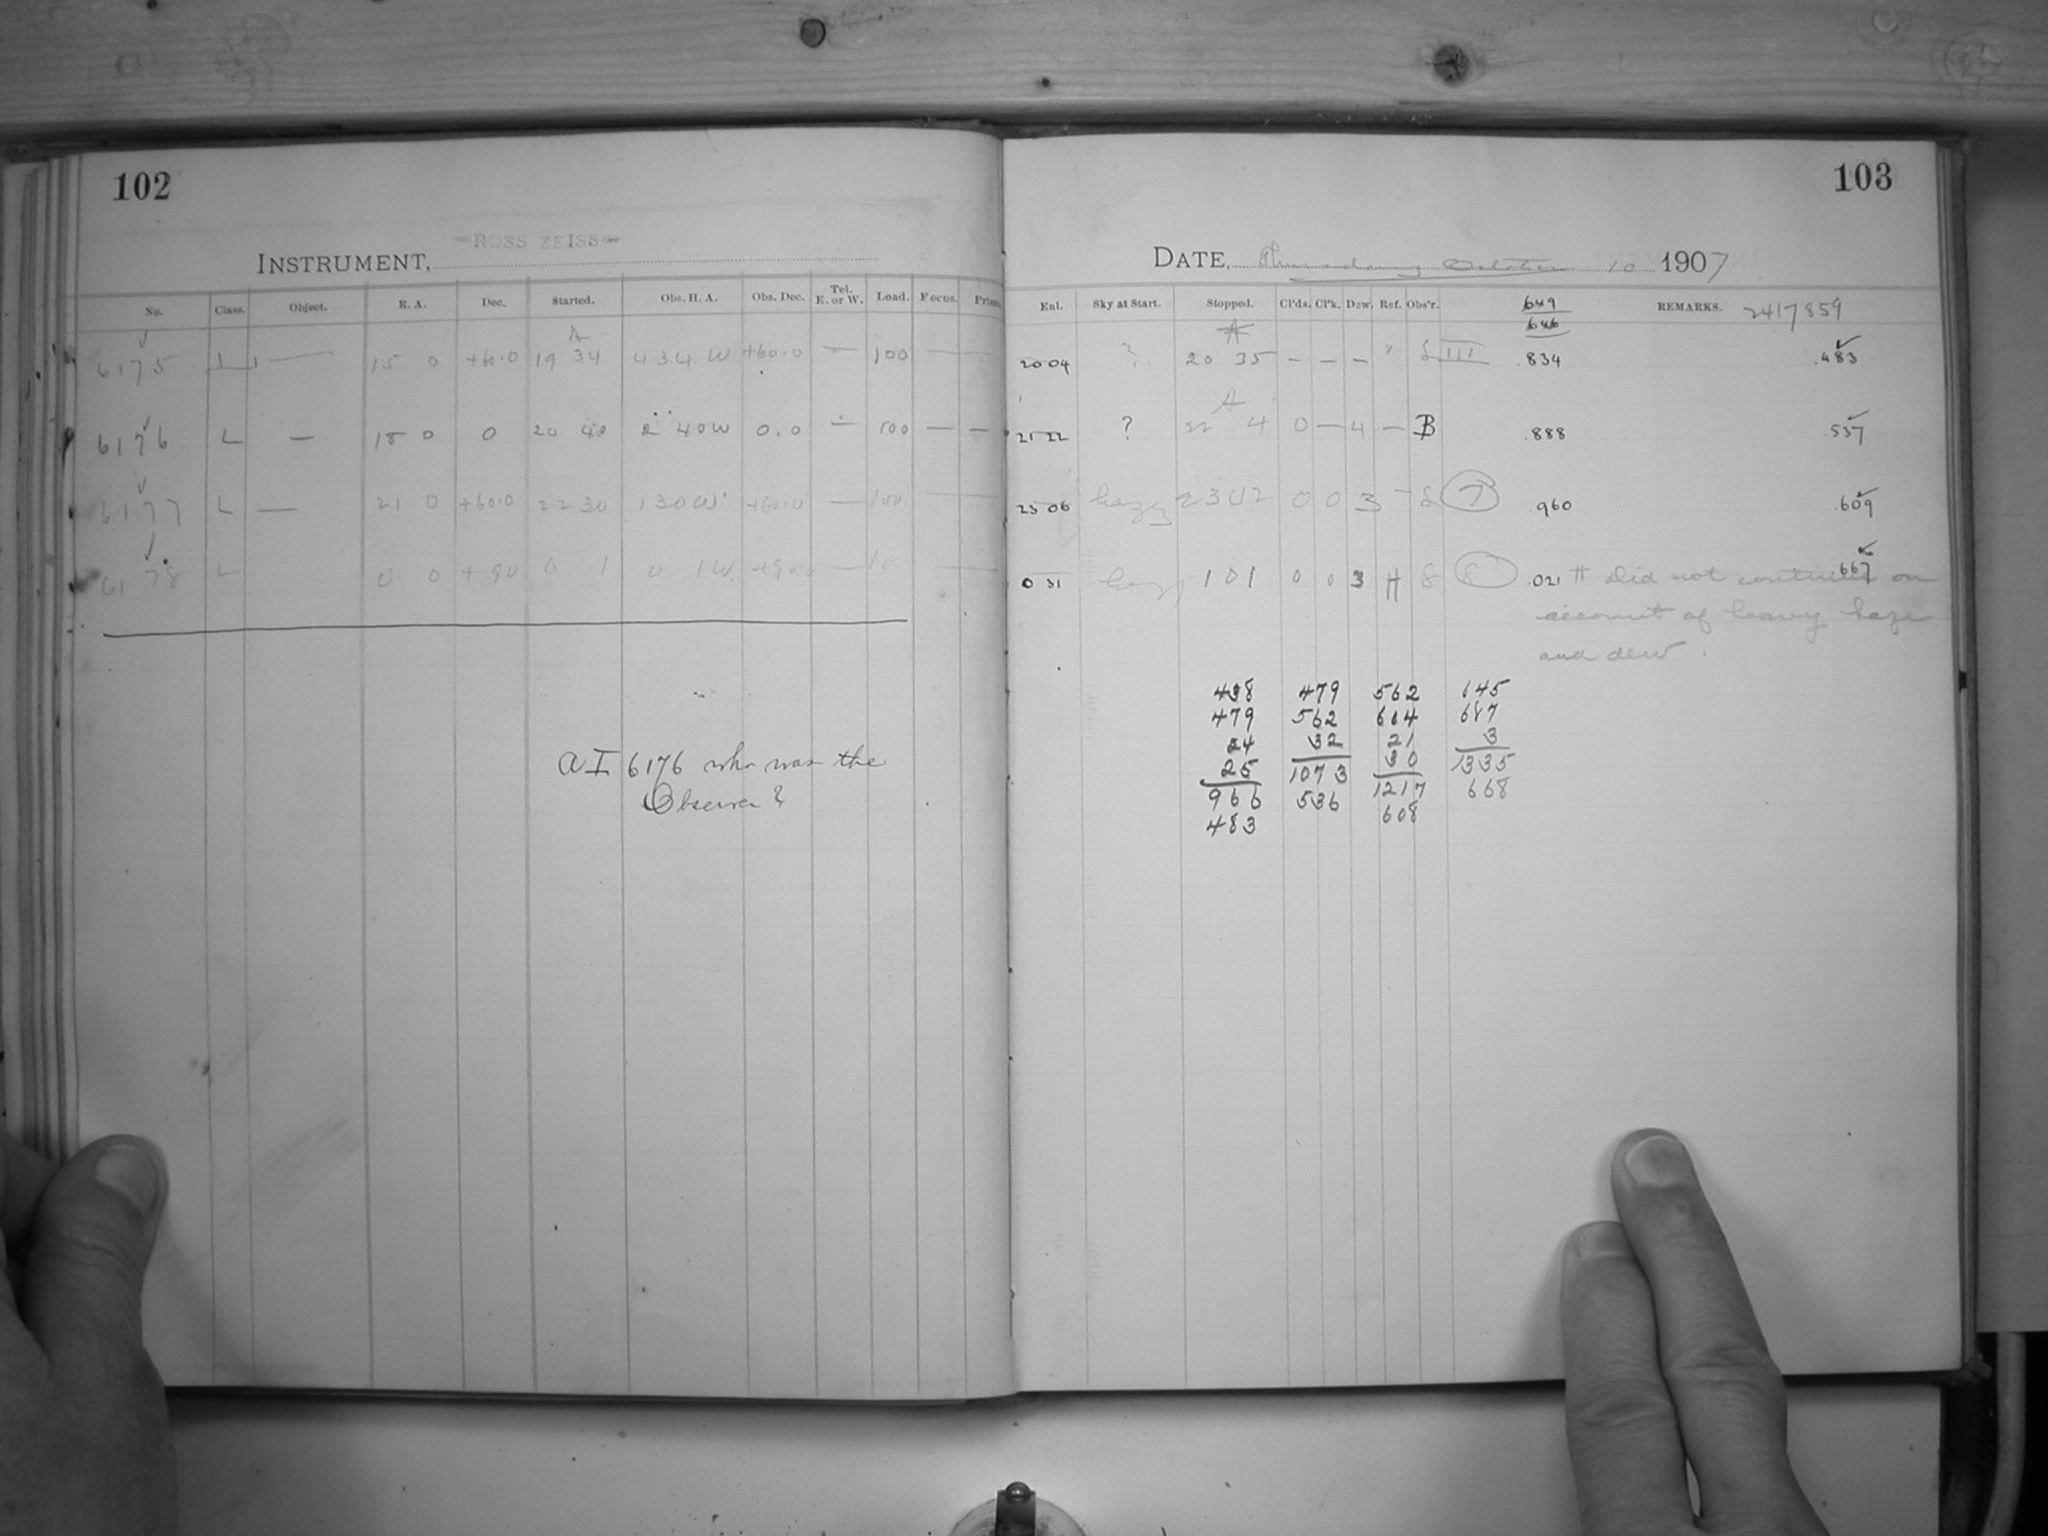 102
ROSS ZEISS
INSTRUMENT,
No. Class. Object. R. A. Dec. Started. Obs. H. A. Obs. Dec. Tel. E. or W. Load. Focus. Prism
6175 L — 15 0 +60.0 19 34 4 34 W +60.0 — 100 — —
6176 L — 18 0 0 20 40 2 40 W 0.0 — 100 — —
6177 L — 21 0 +60.0 22 30 1 30 W +60.0 — 100 — —
6178 L 0 0 + 90 0 1 0 1 W +90 —
AI 6176 who was the
Observer?
103
DATE, Thursday October 10 1907
Enl. Sky at Start. Stopped. Cl'ds. Cl'k. Dew. Ref. Obs'r. 649 646 REMARKS. 2417859
20 04 ? 20 35 – – – " III .834 .483
21 22 ? 22 4 0 — 4 — B .888 .537
23 06 hazy 23 42 0 0 3 – 7 .960 .609
0 31 hazy 1 01 0 0 3 H 8 .021 .667
H Did not continue on
account of heavy haze
and dew.
438 479 562 645
479 562 614 687
24 32 21 3
25 1073 30 1335
966 536 1217 668
483 608